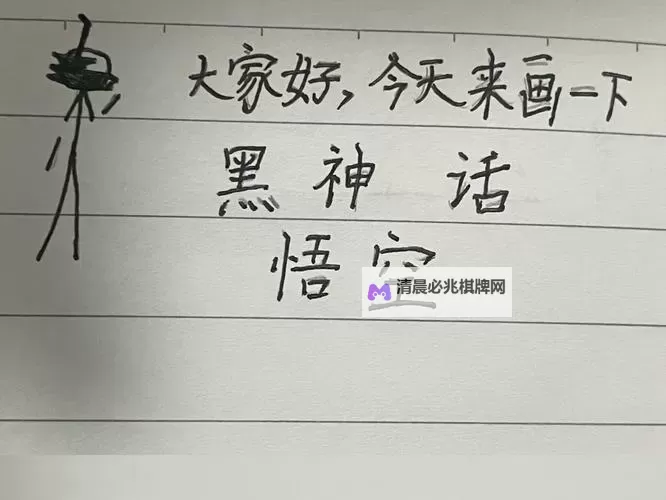 大家好，今天来画一下
黑神话
悟空
清晨必兆棋牌网